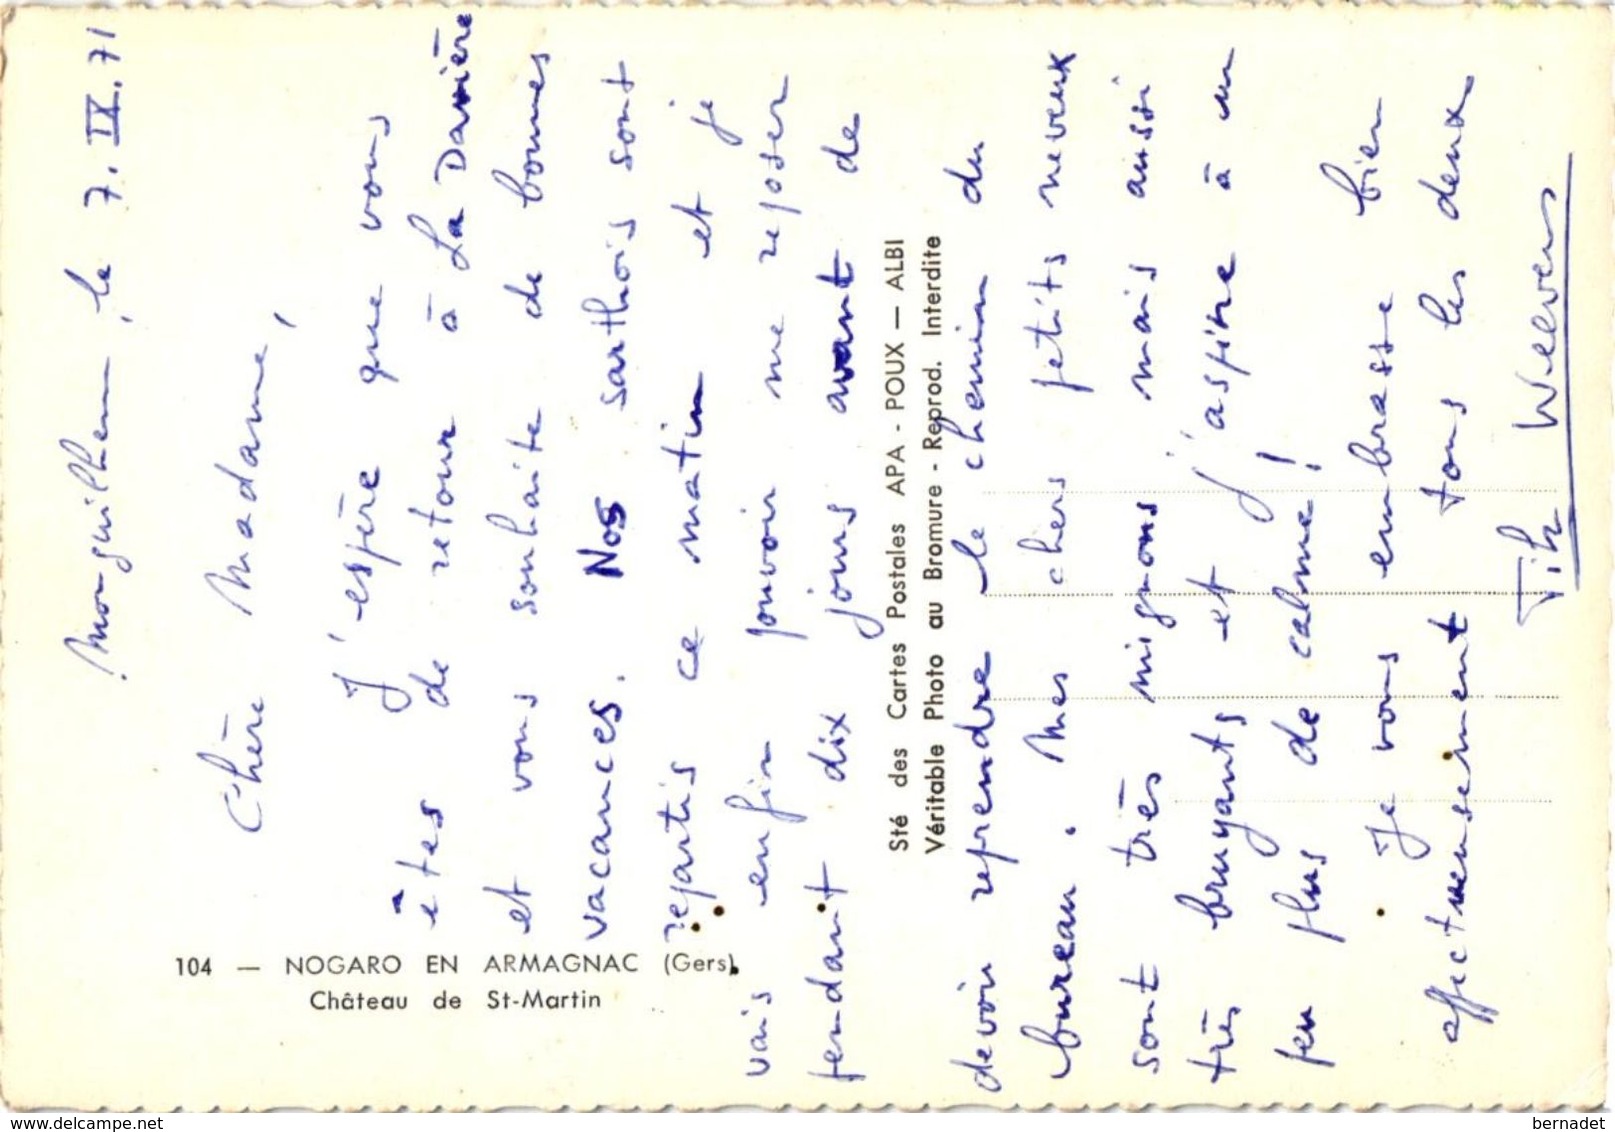 Monguilhem, le 7. IX. 71
Chère Madame,
J'espère que vous
êtes de retour à La Davière
et vous souhaite de bonnes
vacances. Nos sarthois sont
repartis ce matin et je
vais enfin pouvoir me reposer
pendant dix jours avant de
devoir reprendre le chemin du
bureau. Mes chers petits neveux
sont très mignons mais aussi
très bruyants et j'aspire à un
peu plus de calme !
Je vous embrasse bien
affectueusement tous les deux
104 — NOGARO EN ARMAGNAC (Gers)
Château de St-Martin
Sté des Cartes Postales APA - POUX — ALBI
Véritable Photo au Bromure - Reprod. Interdite
www.delcampe.net
bernadet